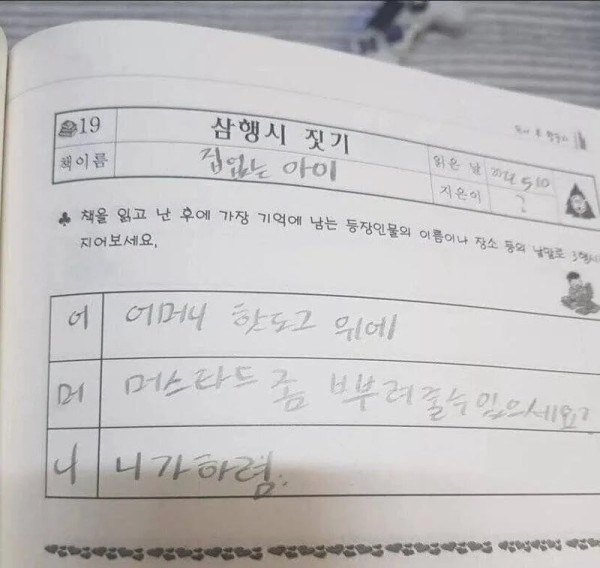 19 삼행시 짓기
책이름 집없는 아이 읽은 날
지은이 ?
♣ 책을 읽고 난 후에 가장 기억에 남는 등장인물의 이름이나 장소 등의 낱말로 3행시
지어보세요.
어 어머니 핫도그 위에
머 머스타드 좀 뿌려줄수 있으세요?
니 니가하렴.